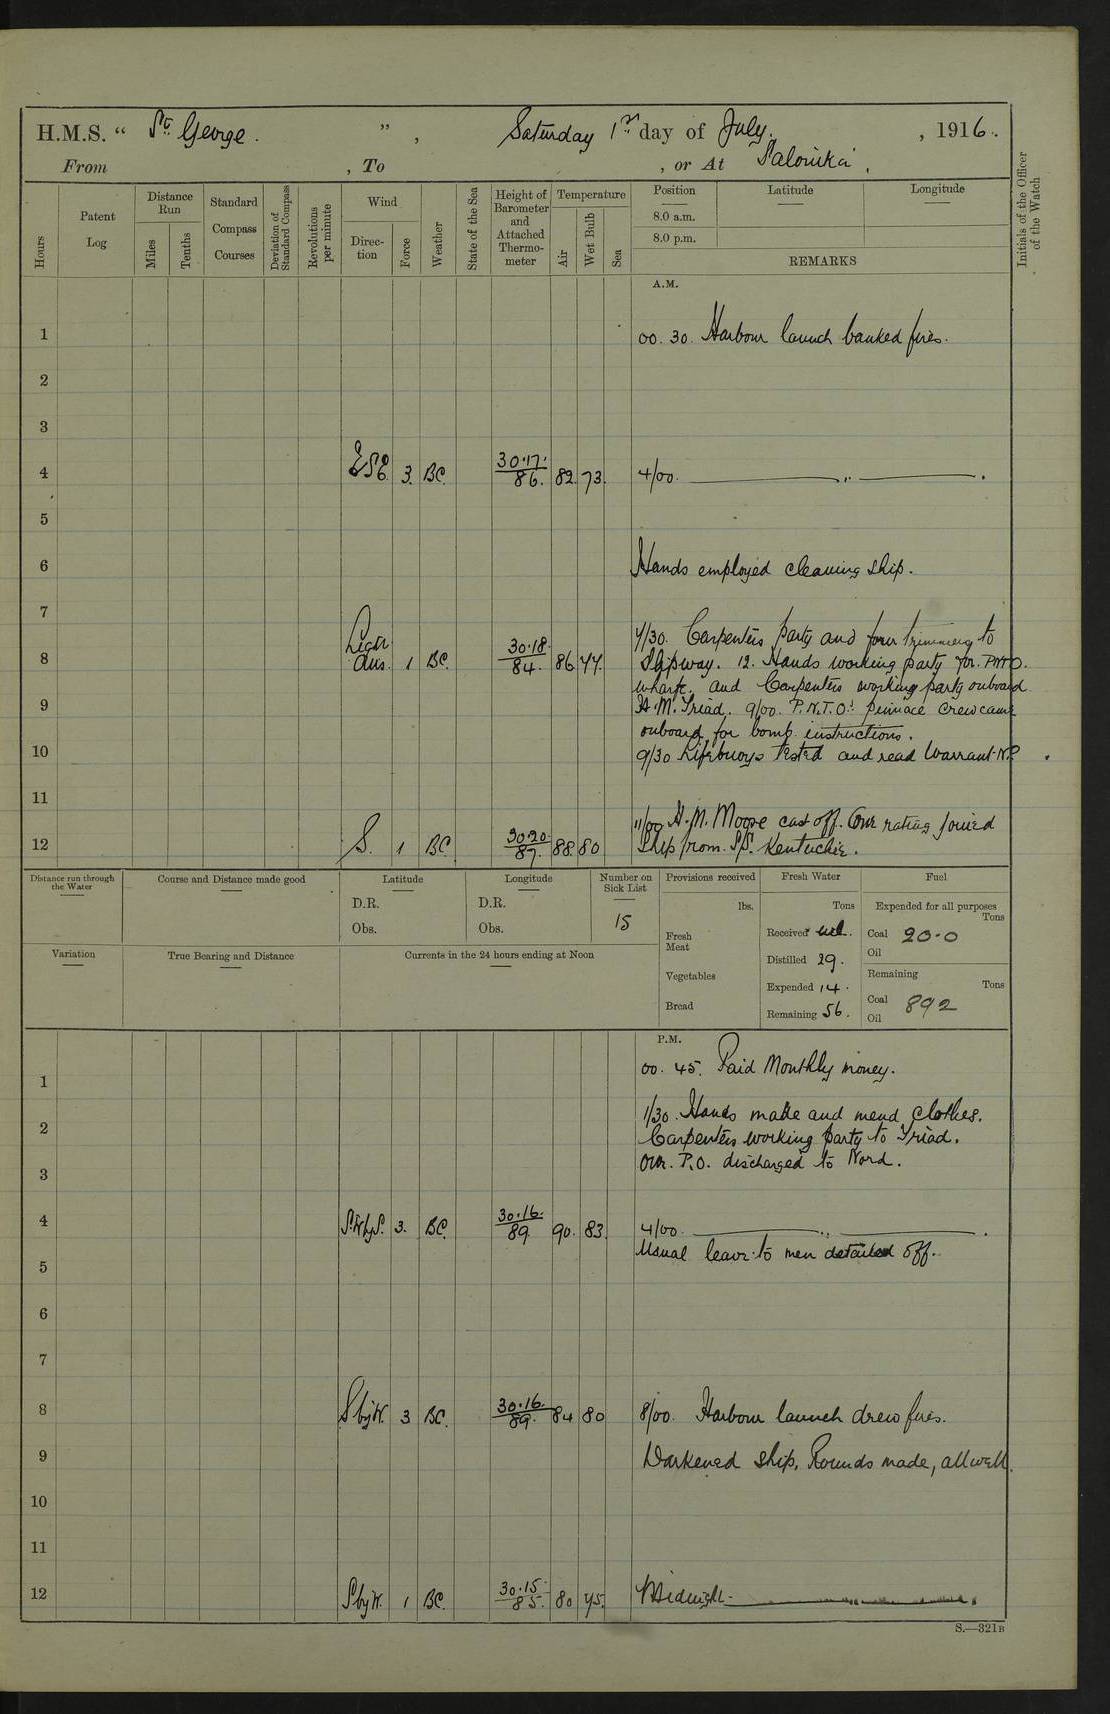 H.M.S. “ St. George. ”, Saturday 1st day of July. , 1916.
From , To , or At Salonika.
Hours
Patent Log
Distance Run
Miles
Tenths
Standard Compass Courses
Deviation of Standard Compass
Revolutions per minute
Wind
Direction
Force
Weather
State of the Sea
Height of Barometer and Attached Thermometer
Temperature
Air
Wet Bulb
Sea
Position
8.0 a.m.
8.0 p.m.
Latitude
Longitude
REMARKS
Initials of the Officer of the Watch
A.M.
1 00. 30. Harbour launch banked fires.
2
3
4 ESE 3. BC. 30.17. 86. 82 73. 4/00. ——— „ ———.
5
6 Hands employed cleaning ship.
7
7/30. Carpenters party and four trimmers to
8 Light airs. 1 BC. 30.18 84. 86 77. Slipway. 12. Hands working party for. PNTO.
wharf. and Carpenters working party onboard
9 H.M. Triad. 9/00. P.N.T.O's pinnace crew came
onboard for bomb instructions.
10 9/30 Lifebuoys tested and read Warrant No
11
11/00 H.M. Moose cast off. One rating joined
12 S. 1 BC. 30.20 87. 88. 80 Ship from. S.S. Kentuckie.
Distance run through the Water
Course and Distance made good
Latitude
D.R.
Obs.
Longitude
D.R.
Obs.
Number on Sick List
15
Provisions received
lbs.
Fresh Meat
Vegetables
Bread
Fresh Water
Tons
Received nil.
Distilled 29.
Expended 14.
Remaining 56.
Fuel
Expended for all purposes
Tons
Coal 20.0
Oil
Remaining
Tons
Coal 892
Oil
Variation
True Bearing and Distance
Currents in the 24 hours ending at Noon
P.M.
00. 45. Paid Monthly money.
1
1/30. Hands make and mend clothes.
2 Carpenters working party to Triad.
One. P.O. discharged to Nord.
3
4 S.W by S. 3. BC. 30.16. 89. 90. 83. 4/00. ——— „ ———.
Usual leave to men detailed off.
5
6
7
8 S by W. 3 BC. 30.16. 89. 84 80 8/00. Harbour launch drew fires.
9 Darkened ship, Rounds made, all well.
10
11
12 S by W. 1 BC. 30.15. 85. 80 75. Midnight. ——— „ ———.
S.—321B